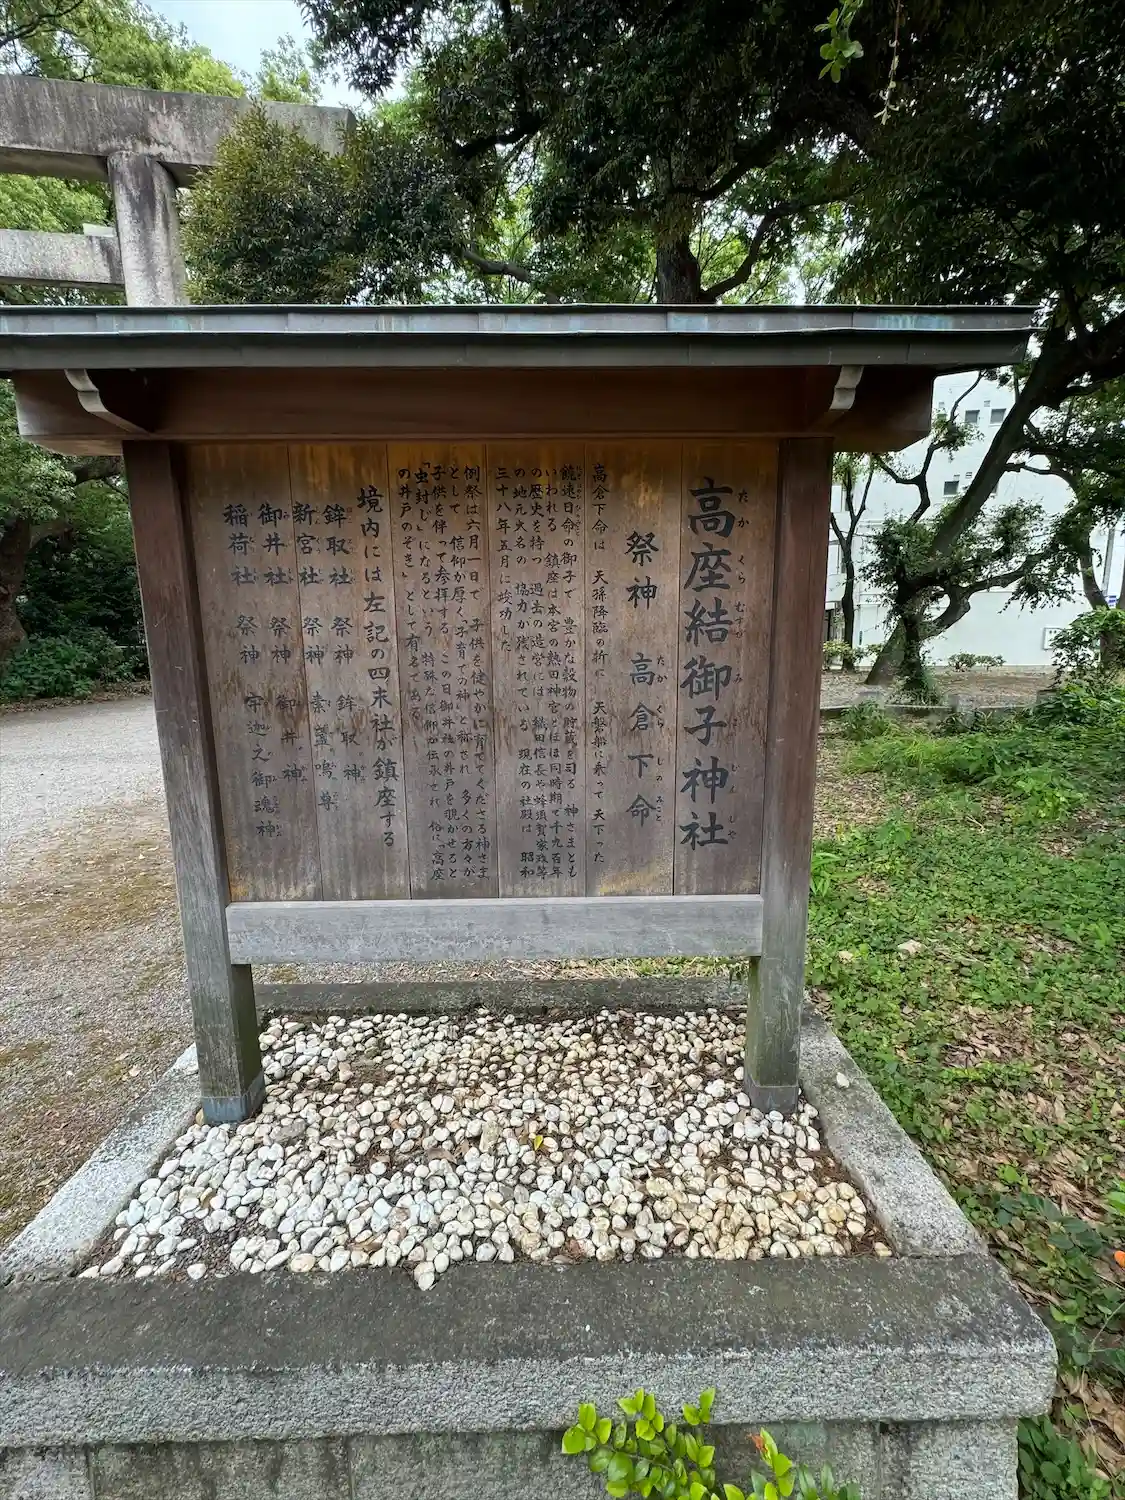 高座結御子神社
たか くら むすび み こ じん しや
祭神 高倉下命
たか くら じの みこと
高倉下命は 天孫降臨の折に 天磐船に乗って 天下った
饒速日命の御子で 豊かな穀物の貯蔵を司る 神さまとも
いわれる 鎮座は本宮の熱田神宮とほぼ同時期で千九百年
の歴史を持つ 過去の造営には 織田信長や蜂須賀家政等
の地元大名の 協力が残されている 現在の社殿は 昭和
三十八年五月に竣功した
例祭は六月一日で 子供を健やかに育ててくださる神さま
として 信仰が厚く「子育ての神」と称され 多くの方々が
子供を伴って参拝する この日御井社の井戸を覗かせると
「虫封じ」になるという 特殊な信仰が伝承され 俗に「高座
の井戸のぞき」として有名である
境内には左記の四末社が鎮座する
鉾取社 祭神 鉾取神
新宮社 祭神 素盞嗚尊
御井社 祭神 御井神
稲荷社 祭神 宇迦之御魂神